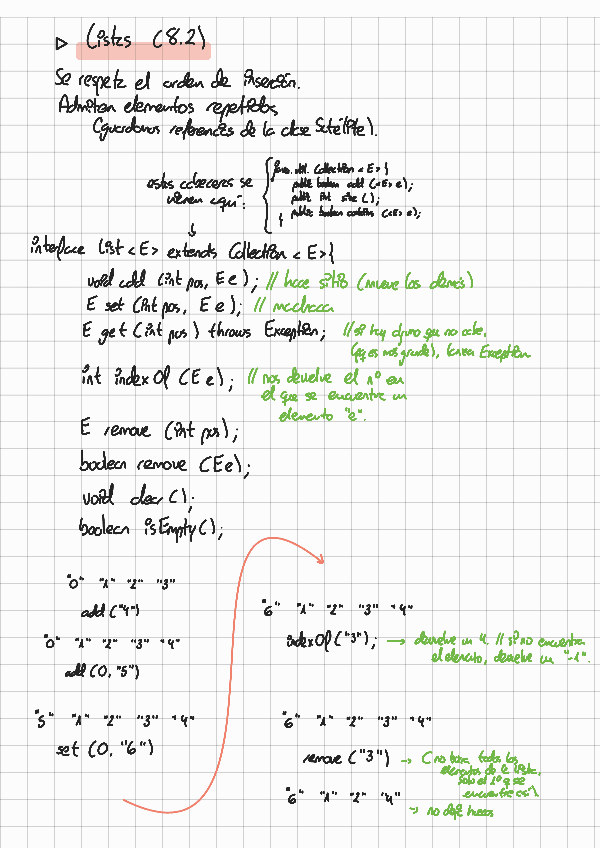 ▷ Listas (8.2)
Se respeta el orden de inserción.
Admiten elementos repetidos
(guardamos referencias de la clase Satélite).
estas cabeceras se
vienen aquí:
java.util.Collection <E> {
public boolean add (<E> e);
public int size ();
public boolean contains (<E> e);
}
interface List <E> extends Collection <E> {
void add (int pos, E e); // hace sitio (mueve los demás)
E set (int pos, E e); // machaca
E get (int pos) throws Exception; // si hay alguno que no cabe,
(pq es más grande), lanza Exception
int indexOf (E e); // nos devuelve el nº en
el que se encuentre un
elemento "e".
E remove (int pos);
boolean remove (E e);
void clear ();
boolean isEmpty ();
"0" "1" "2" "3"
add ("4")
"0" "1" "2" "3" "4"
add (0, "5")
"5" "1" "2" "3" "4"
set (0, "6")
"6" "1" "2" "3" "4"
indexOf ("3"); → devuelve un 4. // si no encuentra
el elemento, devuelve un "-1".
"6" "1" "2" "3" "4"
remove ("3") → (no borra todos los
elementos de la lista,
solo el 1º q se
encuentre así).
"6" "1" "2" "4"
→ no deja huecos